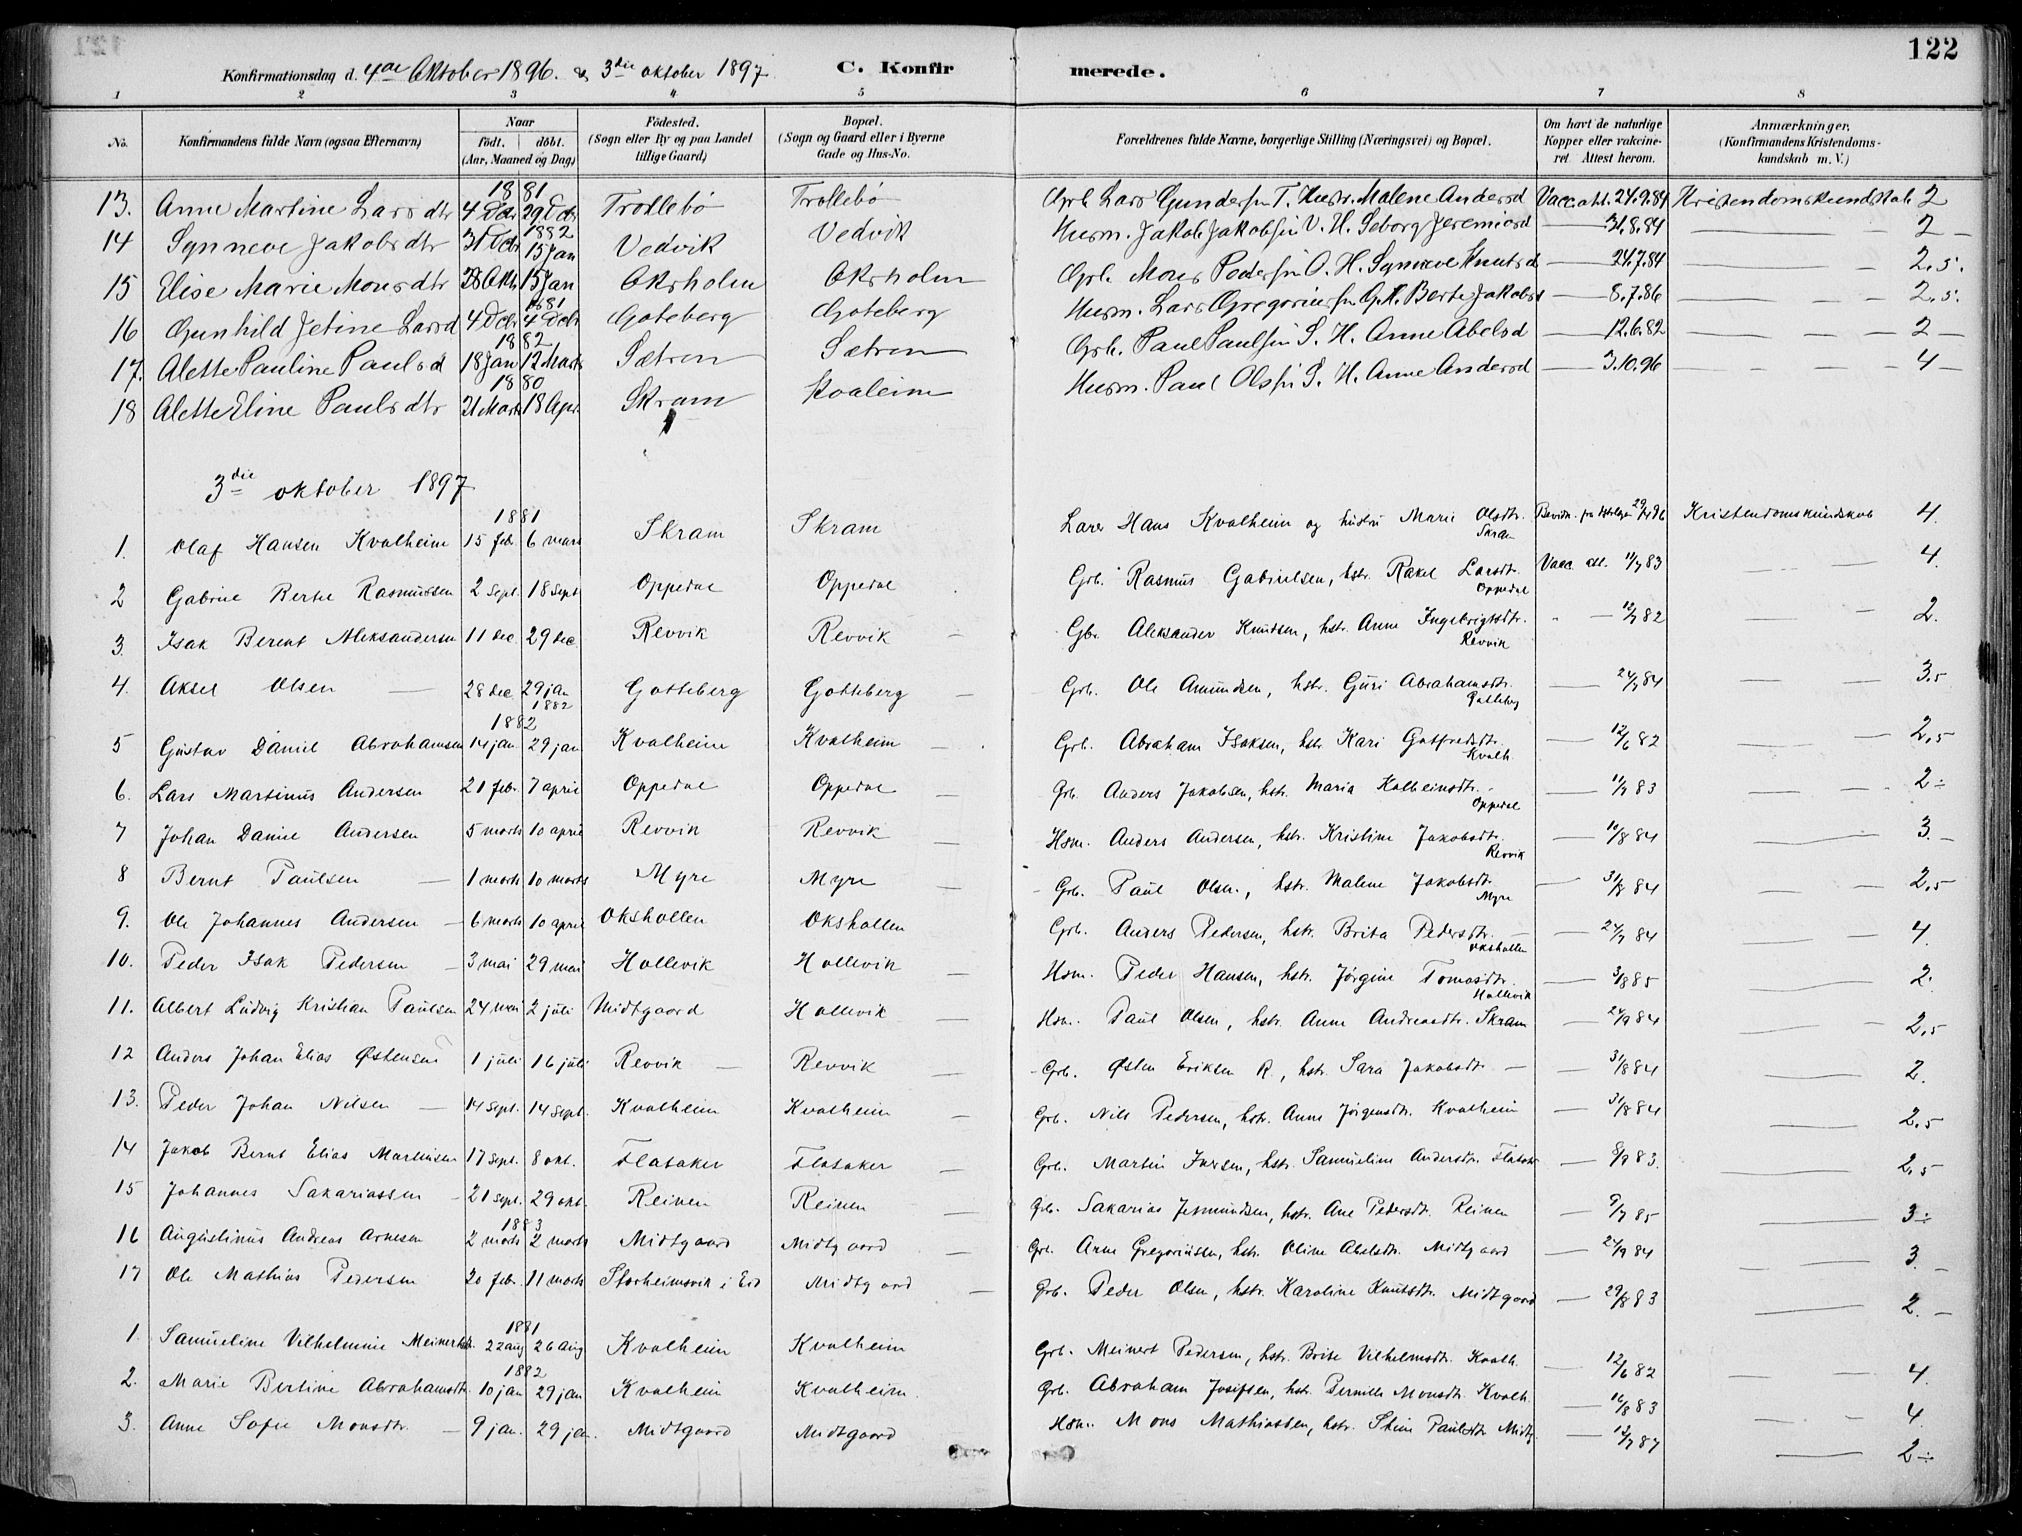 122
Konfirmationsdag d. 4de Oktober 1896. & 3die oktober 1897. C. Konfirmerede.
1 2 3 4 5 6 7 8
No. Konfirmandens fulde Navn (ogsaa Efternavn) Naar født. døbt. (Aar, Maaned og Dag) Fødested. (Sogn eller By og paa Landet tillige Gaard) Bopæl. (Sogn og Gaard eller i Byerne Gade og Hus-No. Forældrenes fulde Navne, borgerlige Stilling (Næringsvei) og Bopæl. Om havt de naturlige Kopper eller vakcineret Attest herom. Anmærkninger. (Konfirmandens Kristendomskundskab m. V.)
1881
13. Anne Martine Larsdtr 4 Dcbr 29 Dcbr Trollebø Trollebø Grb Lars Gundersen T. Hustr. Malene Andersd Vacc. att. 24.9.84 Kristendomskundskab 2
1882
14 Synneve Jakobsdtr 31 Dcbr 15 Jan Vedvik Vedvik Husm. Jakob Jakobsen V. H. Seborg Jeremiasd — 31.8.84 — 2 —
15 Elise Marie Monsdtr 28 Okt. 15 Jan Oksholm Oksholm Grb. Mons Pedersen O. H. Synneve Knutsd — 24.7.84 — 2,5.
1881
16 Gunhild Jetine Larsd 4 Dcbr 4 Dcbr Goteberg Goteberg Husm. Lars Gregoriusen G. H. Berte Jakobsd — 8.7.86 — 2,5.
1882
17. Alette Pauline Paulsd 18 Jan 12 Marts Sætren Sætren Grb. Paul Paulsen S. H. Anne Abelsd — 12.6.82 — 2 —
1880
18 Alette Eline Paulsdtr 21 Marts 18 Apr. Skram Kvaleim Husm. Paul Olsen S. H. Anne Andersd — 3.10.96 — 4 —
3die oktober 1897
1881
1. Olaf Hansen Kvalheim 15 feb. 6 mars Skram Skram Lærer Hans Kvalheim og hustru Marie Olsdtr. Skram 29/4 96 Kristendomskundskab 4.
2 Gabriel Bertel Rasmussen 2 sept. 18 sept Oppedal Oppedal Grb. Rasmus Gabrielsen, hstr. Rakel Larsdtr. Oppedal Vacc. att. 11/7 83 4.
3. Isak Berent Aleksandersen 11 dec. 29 dec. Revvik Revvik Gbr. Aleksander Knudsen, hstr. Anne Ingebrigtsdtr. Revvik — 12/7 82 — 2.
4. Aksel Olsen — 28 dec. 29 jan 1882 Gotteberg Gotteberg Grb. Ole Amundsen, hstr. Guri Abrahamsdtr. Gotteberg — 24/7 84 — 3,5
1882
5 Gustav Daniel Abrahamsen 14 jan. 29 jan Kvalheim Kvalheim Grb. Abraham Isaksen, hstr. Kari Gotfredsdtr. Kvalh. — 12/6 82 — 2,5
6. Lars Martinus Andersen 21 febr. 7 april Oppedal Oppedal Grb. Anders Jakobsen, hstr. Maria Kolbeinsdtr. Oppedal — 11/7 83 — 2 ÷
7 Johan Daniel Andersen 5 marts 10 april Revvik Revvik Hsm. Anders Andersen, hstr. Kristine Jakobsdtr. Revvik — 10/8 84 — 3. —
8 Bernt Paulsen — 1 marts 10 marts Myre Myre Grb. Paul Olsen, hstr. Malene Jakobsdtr. Myre — 31/8 84 — 2,5
9. Ole Johannes Andersen — 6 marts 10 april Okshollen Okshollen Grb. Anders Pedersen, hstr. Brita Pedersdtr. Okshollen — 24/7 84 — 4.
10. Peder Isak Pedersen — 3 mai 29 mai Hollevik Hollevik Hsm. Peder Hansen, hstr. Jørgine Tomasdtr. Hollevik — 3/8 85 — 2.
11. Albert Ludvig Kristian Paulsen 24 mai 2 juli Midtgaard Hollevik Hsm. Paul Olsen, hstr. Anne Andreasdtr. Skram — 24/9 84 — 2,5
12 Anders Johan Elias Østensen 1 juli 16 juli Revvik — Revvik Grb. Østen Eriksen R., hstr. Sara Jakobsdtr — 31/8 84 — 2.
13. Peder Johan Nilsen — 14 sept. 14 sept. Kvalheim Kvalheim Grb. Nils Pedersen, hstr. Anne Jørgensdtr. Kvalheim — 31/8 84 — 2,5
14 Jakob Bernt Elias Martinsen 17 sept. 8 okt. Flataker Flataker Grb. Martin Iversen, hstr. Samueline Andersdtr. Flataker — 8/9 83. — 2,5
15 Johannes Sakariassen — 21 sept. 29 okt. Reinen Reinen Grb. Sakarias Jesmundsen, hstr. Ane Pedersdtr. Reinen — 9/7 85 — 3 ÷
1883
16 Augustinus Andreas Arnesen 2 marts 2 marts Midtgaard Midtgaard Grb. Arne Gregoriusen, hstr. Oline Abelsdtr. Midtgaard — 24/9 84 — 3. —
17 Ole Mathias Pedersen 20 febr. 11 marts Storheimsvik i Eid Midtgaard Grb. Peder Olsen, hstr. Karoline Knutsdtr. Midtgaard — 29/8 83 — 2. —
1881
1. Samueline Vilhelmine Meinertsdtr. 22 aug 26 aug Kvalheim Kvalheim Grb. Meinert Pedersen, hstr. Brite Vilhelmsdtr. Kvalh. — 12/6 82 — 4.
1882
2. Marie Bertine Abrahamsdtr. 10 jan 29 jan Kvalheim Kvalheim. Grb. Abraham Josefsen, hstr. Pernille Monsdtr. Kvalh. — 16/8 83 — 4.
3. Anne Sofie Monsdtr. — 9 jan. 29 jan. Midtgaard Midtgaard Hsm. Mons Mathiassen, hstr. Stine Paulsdtr Midtg. — 13/7 87 — 2 ÷